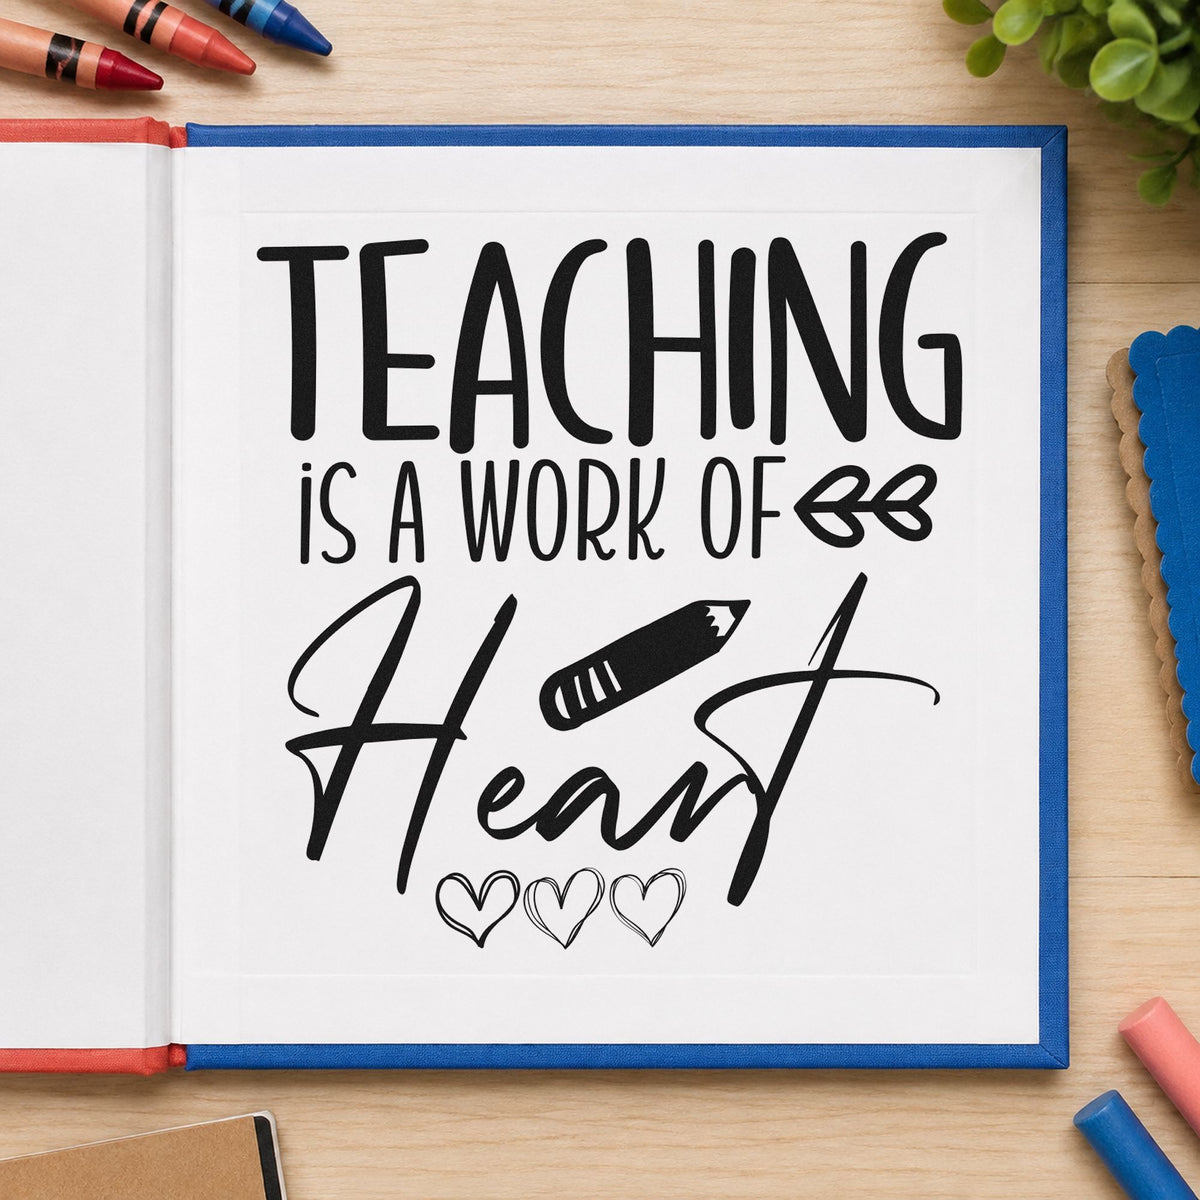 TEACHING
iS A WORK OF
Heart